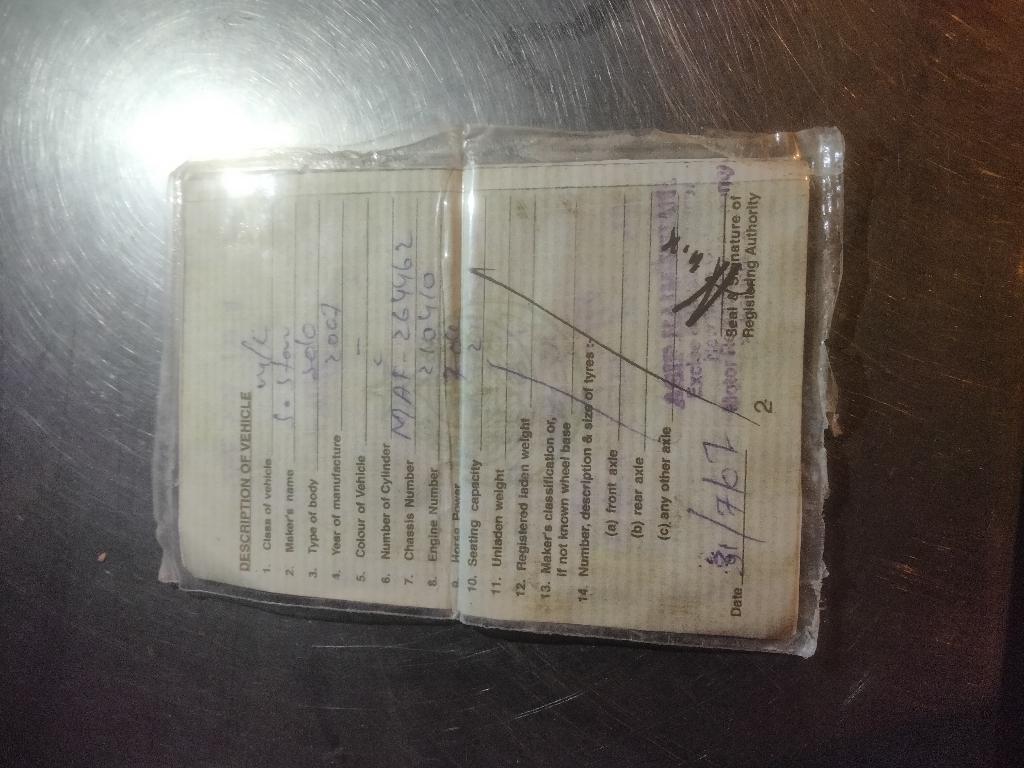 DESCRIPTION OF VEHICLE
1. Class of vehicle m/c
2. Maker's name
3. Type of body Solo
4. Year of manufacture 2007
5. Colour of Vehicle —
6. Number of Cylinder
7. Chassis Number MAF-264462
8. Engine Number 210410
9. Horse Power
10. Seating capacity 2
11. Unladen weight
12. Registered laden weight
13. Maker's classification or,
if not known wheel base
14. Number, description & size of tyres :-
(a) front axle
(b) rear axle
(c) any other axle
Excise
Motor
Date 31/7/07 Seal & Signature of
Registering Authority
2